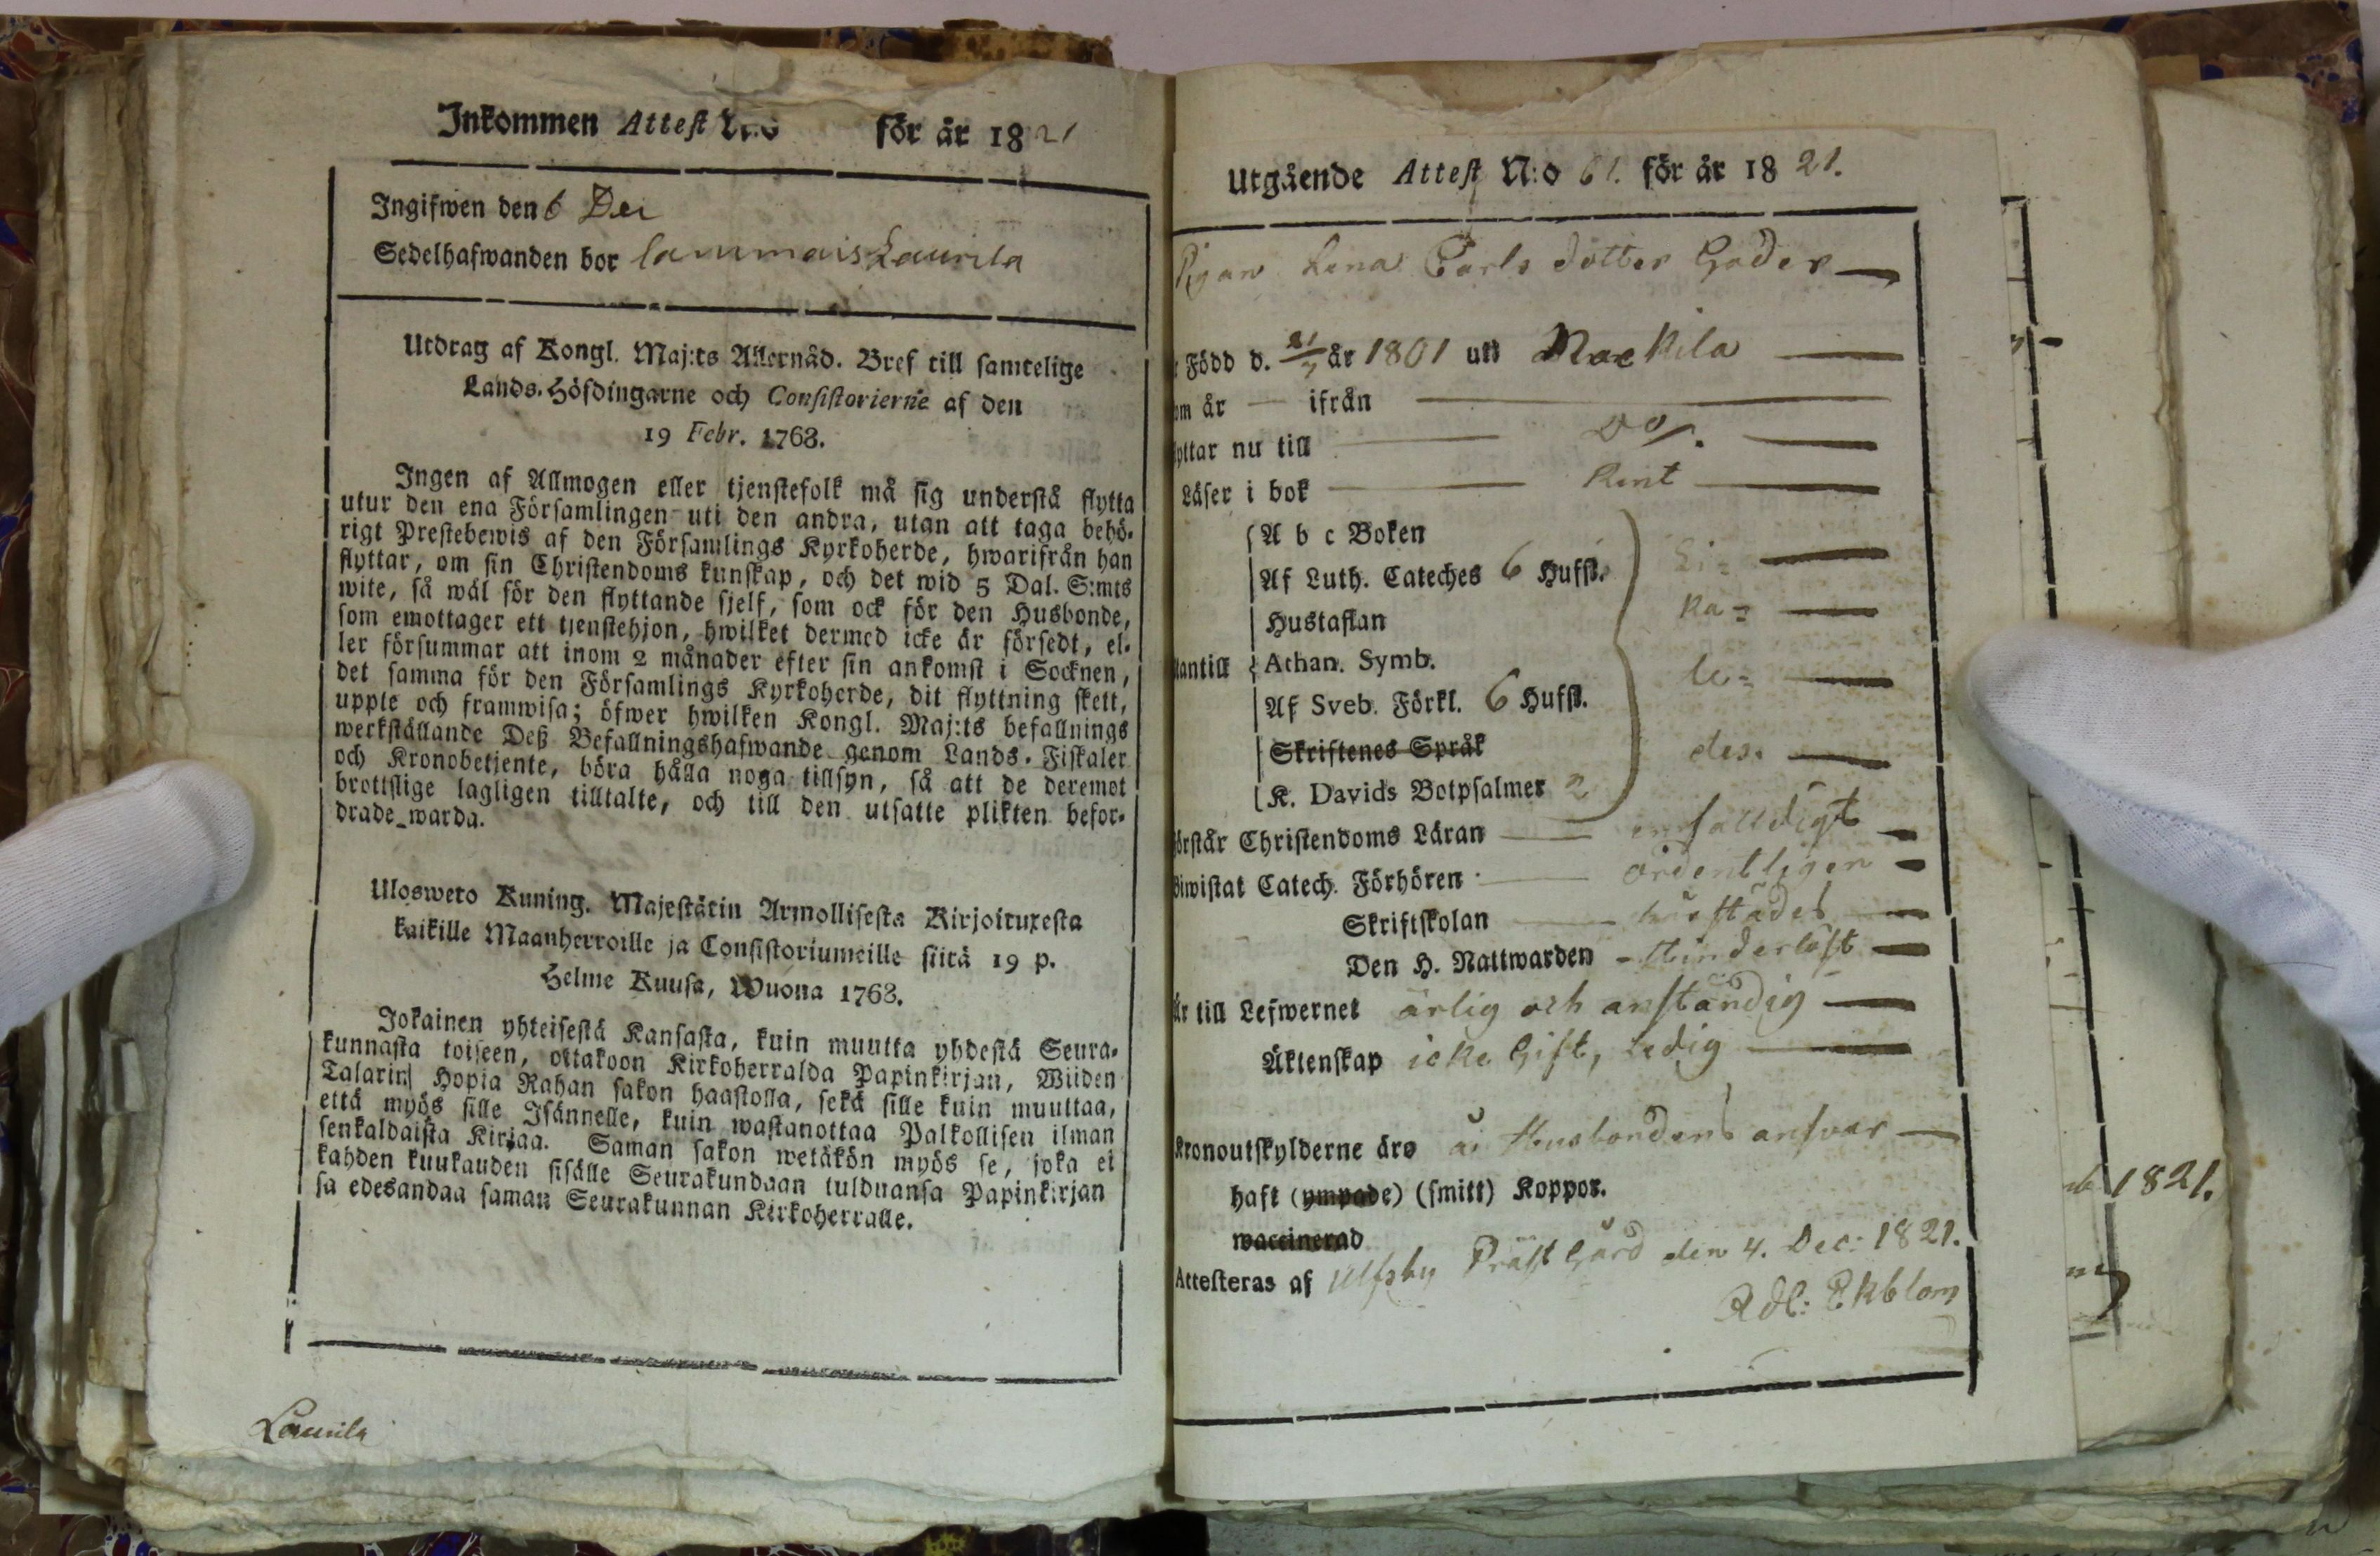 Inkommen Attest N:o för år 1821
Ingifwen den 6 Dec
Sedelhafwanden bor Lammais Laurila
Utdrag af Kongl. Maj:ts Allernåd. Bref till samtelige
Lands-Höfdingarne och Consistorierne af den
19 Febr. 1768.
Ingen af Allmogen eller tjenstefolk må sig understå flytta
utur den ena Församlingen uti den andra, utan att taga behö-
rigt Prestebewis af den Församlings Kyrkoherde, hwarifrån han
flyttar, om sin Christendoms kunskap, och det wid 5 Dal. S:mts
wite, så wäl för den flyttande sjelf, som ock för den Husbonde,
som emottager ett tjenstehjon, hwilket dermed icke är försedt, el-
ler försummar att inom 2 månader efter sin ankomst i Socknen,
det samma för den Församlings Kyrkoherde, dit flyttning skett,
upple och framwisa; öfwer hwilken Kongl. Maj:ts befallnings
werkställande Deß Befallningshafwande genom Lands-Fiskaler
och Kronobetjente, böra hålla noga tillsyn, så att de deremot
brottslige lagligen tilltalte, och till den utsatte plikten befor-
drade warda.
Ulosweto Kuning. Majestätin Armollisesta Kirjoituxesta
kaikille Maanherroille ja Consistoriumeille siitä 19 p.
Helme Kuusa, Wuona 1768.
Jokainen yhteisestä Kansasta, kuin muutta yhdestä Seura-
kunnasta toiseen, ottakoon Kirkoherralda Papinkirjan, Wiiden
Talarin Hopia Rahan sakon haastolla, sekä sille kuin muuttaa,
että myös sille Isännelle, kuin wastanottaa Palkollisen ilman
senkaldaista Kirjaa. Saman sakon wetäkön myös se, joka ei
kahden kuukauden sisälle Seurakundaan tulduansa Papinkirjan
sa edesandaa saman Seurakunnan Kirkoherralle.
Laurila
Utgående Attest N:o 61. för år 1821.
Pigan Lena Carls dotter Goder
Född d. 21/7 år 1801 uti
om år — ifrån
yttar nu till Do/.
Läser i bok Rent
A b c Boken
Af Luth. Cateches 6 Hufst. Li-
Hustaflan ka-
antill Athan. Symb. le-
Af Sveb. Förkl. 6 Hufst.
Skriftenes Språk des.
K. Davids Botpsalmer 2
örstår Christendoms Läran enfalldigt
iwistat Catech. Förhören ordentligen
Skriftskolan härstädes
Den H. Nattwarden - Hinderlöst
Är till Lefwernet ärlig och anständig
Äktenskap icke Gift, Ledig
Kronoutskylderne äro å Husbondens ansvar
haft (ympade) (smitt) Koppor.
waccinerad
Attesteras af Ulfsby Präst Gård den 4. Dec: 1821.
Adl: Ekblom
1821.